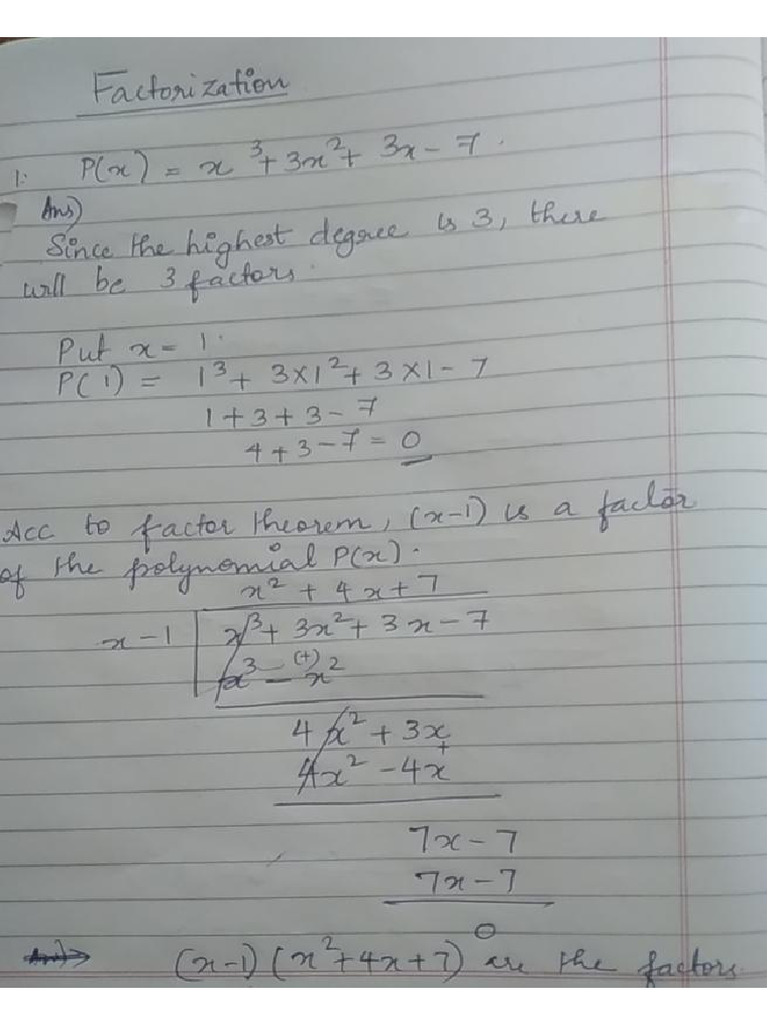 Factorization
1. P(x) = x³ + 3x² + 3x - 7.
Ans)
Since the highest degree is 3, there
will be 3 factors.
Put x = 1.
P(1) = 1³ + 3×1² + 3×1 - 7
1 + 3 + 3 - 7
4 + 3 - 7 = 0
Acc to factor theorem, (x-1) is a factor
of the polynomial P(x).
x² + 4x + 7
x - 1 | x³ + 3x² + 3x - 7
x³ - (+) x²
4x² + 3x
4x² - 4x
+
7x - 7
7x - 7
0
(x-1) (x² + 4x + 7) are the factors